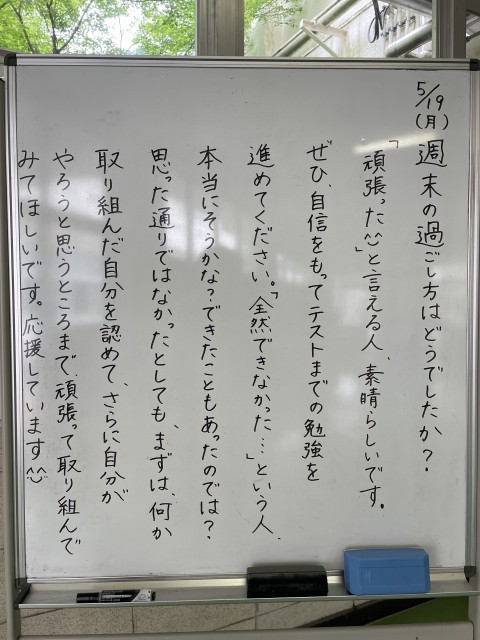 5/19(月) 週末の過ごし方はどうでしたか?
「頑張った^^」と言える人、素晴らしいです。
ぜひ、自信をもってテストまでの勉強を
進めてください。「全然できなかった…」という人、
本当にそうかな?できたこともあったのでは?
思った通りではなかったとしても、まずは、何か
取り組んだ自分を認めて、さらに自分が
やろうと思うところまで、頑張って取り組んで
みてほしいです。応援しています^^